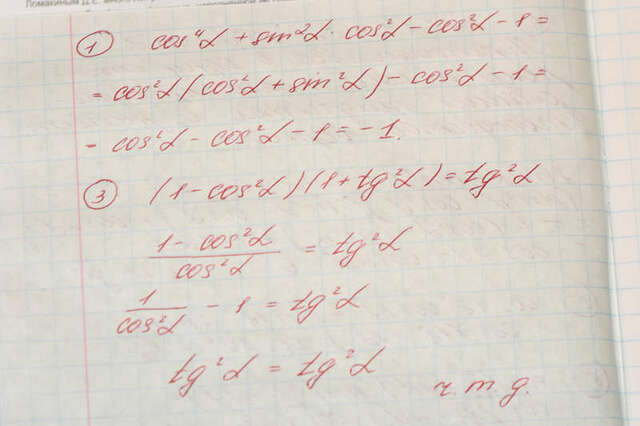 ① cos⁴α + sin²α · cos²α – cos²α – 1 =
= cos²α (cos²α + sin²α) – cos²α – 1 =
- cos²α – cos²α – 1 = – 1.
③ (1 – cos²α) (1 + tg²α) = tg²α
1 – cos²α / cos²α = tg²α
1 / cos²α – 1 = tg²α
tg²α = tg²α
ч. т. д.